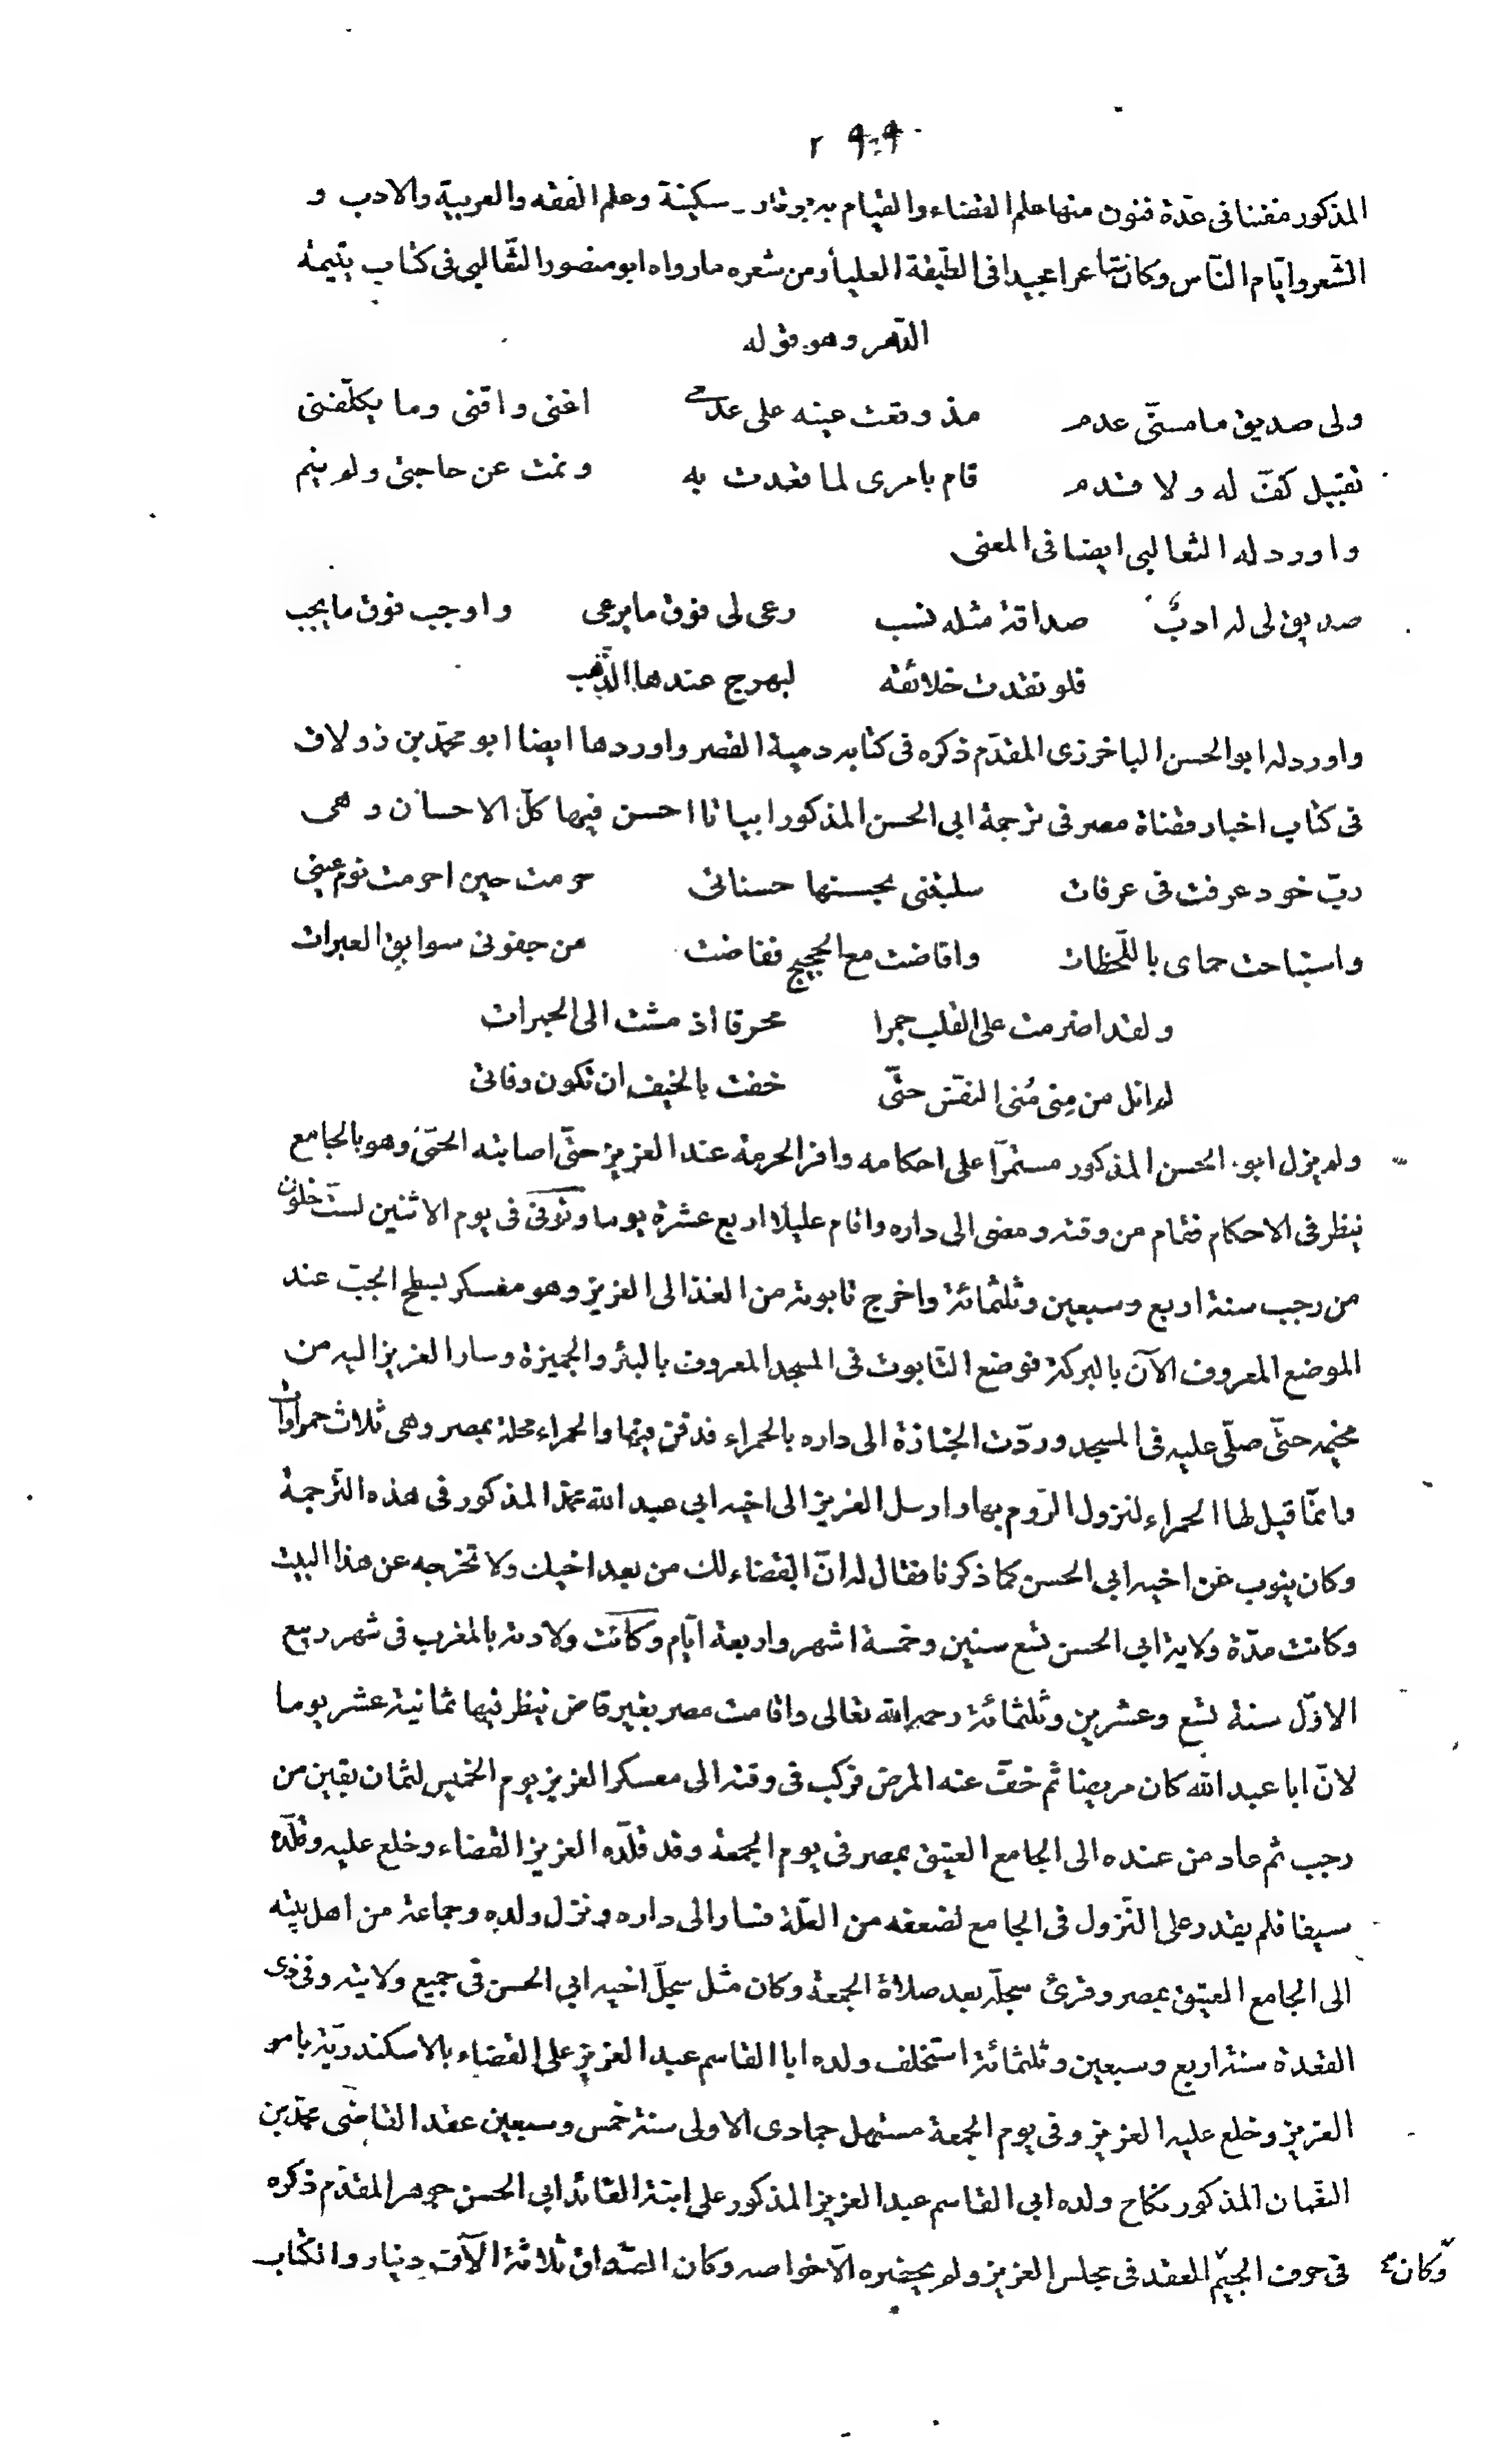 المذكور مفننا فى عدّة فنون منها علم القضاء والقيام به بوقار وسكينة وعلم الفقه والعربية والادب و
الشّعر وايّام النّاس وكان شاعرا مجيدا فى الطّبقة العليا ومن شعره مارواه ابو منصور الثّعالبى فى كتاب يتيمة
الدّهر وهو قوله
ولى صديق ما مسنّى عدم مذ وقعت عينه على عدمى اغنى واقنى وما يكلّفنى
تقبيل كفّ له ولا قدم قام بامرى لما قعدت به ونمت عن حاجتى ولم ينم
واورد له الثعالبى ايضا فى المعنى
صديق لى له ادبٌ صداقة مثله نسب رعى لى فوق ما يرعى واوجب فوق ما يجب
فلو نقدت خلائقه لبهرج عندها الذّهب
واورد له ابو الحسن الباخرزى المقدّم ذكره فى كتابه دمية القصر واوردها ايضا ابو محمّد بن زولاق
فى كتاب اخبار قضاة مصر فى ترجمة ابى الحسن المذكور ابياتا احسن فيها كلّ الاحسان وهى
ربّ خود عرفت فى عرفات سلبتنى بحسنها حسناتى حرمت حين احرمت نوم عينى
واستباحت حماى باللّحظات وافاضت مع الحجيج ففاضت من جفونى سوابق العبرات
ولقد اضرمت على القلب جمرا محرقا اذ مشت الى الجمرات
لم انل من مِنى مُنى النفس حتّى خفت بالخيف ان تكون وفاتى
ولم يزل ابو الحسن المذكور مستمرّا على احكامه وافر الحرمة عند العزيز حتّى اصابته الحمّى وهو بالجامع
ينظر فى الاحكام فقام من وقته ومضى الى داره واقام عليلا اربع عشرة يوما وتوفى فى يوم الاثنين لستّ خلون
من رجب سنة اربع وسبعين وثلثمائة واخرج تابوته من الغد الى العزيز وهو معسكر بسطح الجبّ عند
الموضع المعروف الآن بالبركة فوضع التّابوت فى المسجد المعروف بالبئر والجميزة وسار العزيز اليه من
مخيمه حتّى صلّى عليه فى المسجد وردّت الجنازة الى داره بالحمراء فدفن فيها والحمراء محلة بمصر وهى ثلاث حمراوات
وانمّا قيل لها الحمراء لنزول الرّوم بها وارسل العزيز الى اخيه ابى عبد الله محمّد المذكور فى هذه التّرجمة
وكان ينوب عن اخيه ابى الحسن كما ذكرنا فقال له انّ القضاء لك من بعد اخيك ولا تخرجه عن هذا البيت
وكانت مدّة ولاية ابى الحسن تسع سنين وخمسة اشهر واربعة ايّام وكانت ولادته بالمغرب فى شهر ربيع
الاوّل سنة تسع وعشرين وثلثمائة رحمه الله تعالى واقامت مصر بغير قاض ينظر فيها ثمانية عشر يوما
لانّ ابا عبد الله كان مريضا ثم خفّ عنه المرض فركب فى وقته الى معسكر العزيز يوم الخميس لثمان بقين من
رجب ثم عاد من عنده الى الجامع العتيق بمصر فى يوم الجمعة وقد قلّده العزيز القضاء وخلع عليه وقلّده
سيفا فلم يقدر على النّزول فى الجامع لضعفه من العلّة فسار الى داره ونزل ولده وجماعة من اهل بيته
الى الجامع العتيق بمصر وقرئ سجلّه بعد صلاة الجمعة وكان مثل سجلّ اخيه ابى الحسن فى جميع ولايته وفى ذى
القعدة سنة اربع وسبعين وثلثمائة استخلف ولده ابا القاسم عبد العزيز على القضاء بالاسكندريّة بامر
العزيز وخلع عليه العزيز وفى يوم الجمعة مستهل جمادى الاولى سنة خمس وسبعين عقد القاضى محمّد بن
النعمان المذكور نكاح ولده ابى القاسم عبد العزيز المذكور على ابنة القائد ابى الحسن جوهر المقدّم ذكره
فى حرف الجيم العقد فى مجلس العزيز ولم يحضره الّا خواصه وكان الصّداق ثلاثة الآف دينار والكتاب
وكان